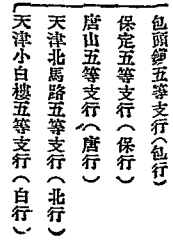 包頭鎭五等支行(包行)
保定五等支行(保行)
唐山五等支行(唐行)
天津北馬路五等支行(北行)
天津小白樓五等支行(白行)